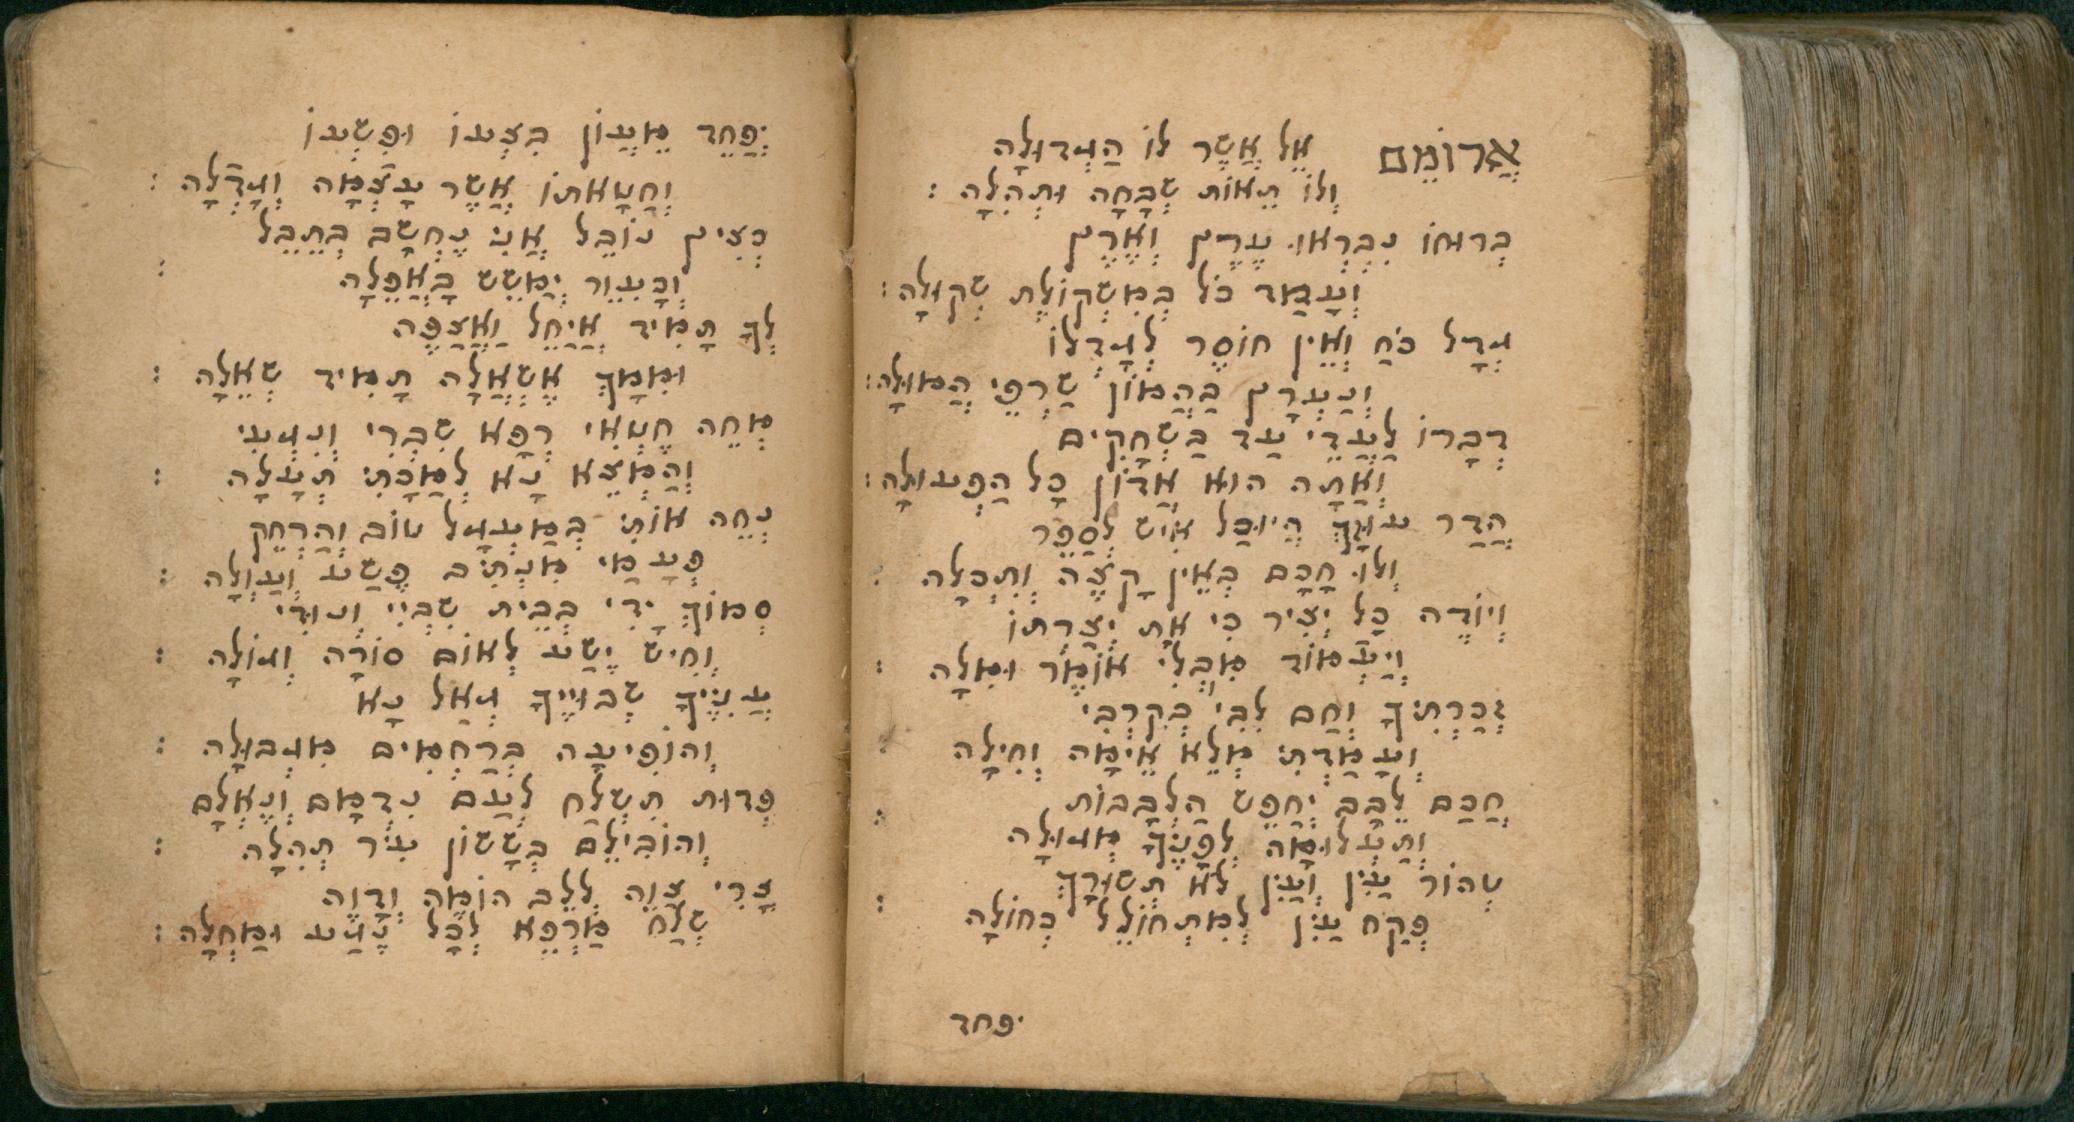 אֲרוֹמֵם אֵל אֲשֶׁר לוֹ הַגְּדוּלָּה
וְלוֹ תֵּאוֹת שְׁבָחָה וּתְהִלָּה :
בְּרוּחוֹ נִבְרְאוּ עֶרֶץ וְאֶרֶץ
וְעָמַד כֹּל בְּמִשְׁקוֹלֶת שְׁקוּלָה :
גְּדָל כֹּחַ וְאֵין חוֹסֶר לְגָדְלוֹ
וְנַעְרָץ בַּהֲמוֹן שַׂרְפֵי הֲמוּלָּה :
דְּבָרוֹ לַעֲדֵי עַד בַּשְּׁחָקִים
וְאַתָּה הוּא אֲדוֹן כָּל הַפְּעוּלָּה :
הֲדַר עוּזָּךְ הֲיוּכַל אִישׁ לְסַפֵּר
וְלוּ חָכָם בְּאֵין קָצֶה וְתִכְלָה :
וְיוֹדֶה כָּל יְצִיר כִּי אַתָּ יְצַרְתּוֹ
וְיַעֲמוֹד מִבְּלִי אוֹמֶר וּמִלָּה :
זְכַרְתִּיךָ וְחַם לִבִּי בְּקִרְבִּי
וְעָמַדְתִּי מְלֵא אֵימָה וְחִילָה :
חֲכַם לֵבָב יְחַפֵּשׂ הַלְּבָבוֹת
וְתַעֲלוּמָה לְפָנֶיךָ מְגוּלָּה :
טְהוֹר עַיִן וְעַיִן לֹא תְשׁוּרָךְ
פְּקַח עַיִן לְמִתְחוֹלֵל כְּחוֹלָה :
יפחד
יְפַחֵד מֵעֲוֹן בִּצְעוֹ וּפִשְׁעוֹ
וְחַטָּאתוֹ אֲשֶׁר עָצְמָה וְגָדְלָה :
כְּצִיץ נוֹבֵל אֲנִי נֶחְשָׁב בְּתֵבֵל
וְכָעִוֵּר יְמַשֵּׁשׁ בָּאֲפֵלָה :
לְךָ תָּמִיד אֲיַחֵל וַאֲצַפֶּה
וּמִמָּךְ אֶשְׁאֲלָה תָּמִיד שְׁאֵלָה :
מְחֵה חֶטְאִי רְפָא שִׁבְרִי וְנִגְעִי
וְהַמְצֵא נָא לְמַכָּתִי תְּעָלָה :
נְחֵה אוֹתִי בְּמַעְגַּל טוֹב וְהַרְחֵק
פְּעָמַי מִנְּתִיב פֶּשַׁע וְעַוְלָה :
סְמוֹךְ יָדִי בְּבֵית שִׁבְיִי וְנוּדִי
וְחִישׁ יֶשַׁע לְאוֹם סוּרָה וְגוֹלָה :
עֲנִיֶּיךָ שְׁבוּיֶיךָ גְּאַל נָא
וְהוֹפִיעָה בְּרַחְמִים מִגְּבוּלָה :
פְּדוּת תִּשְׁלַח לְעַם נִדְמָם וְנֶאְלָם
וְהוֹבִילֵם בְּשָׂשׂוֹן עִיר תְּהִלָּה :
צֳרִי צַוֵּה לְלֵב הוֹמֶה וְדָוֶה
שְׁלַח מַרְפֵּא לְכָל נֶגַע וּמַחֲלָה :